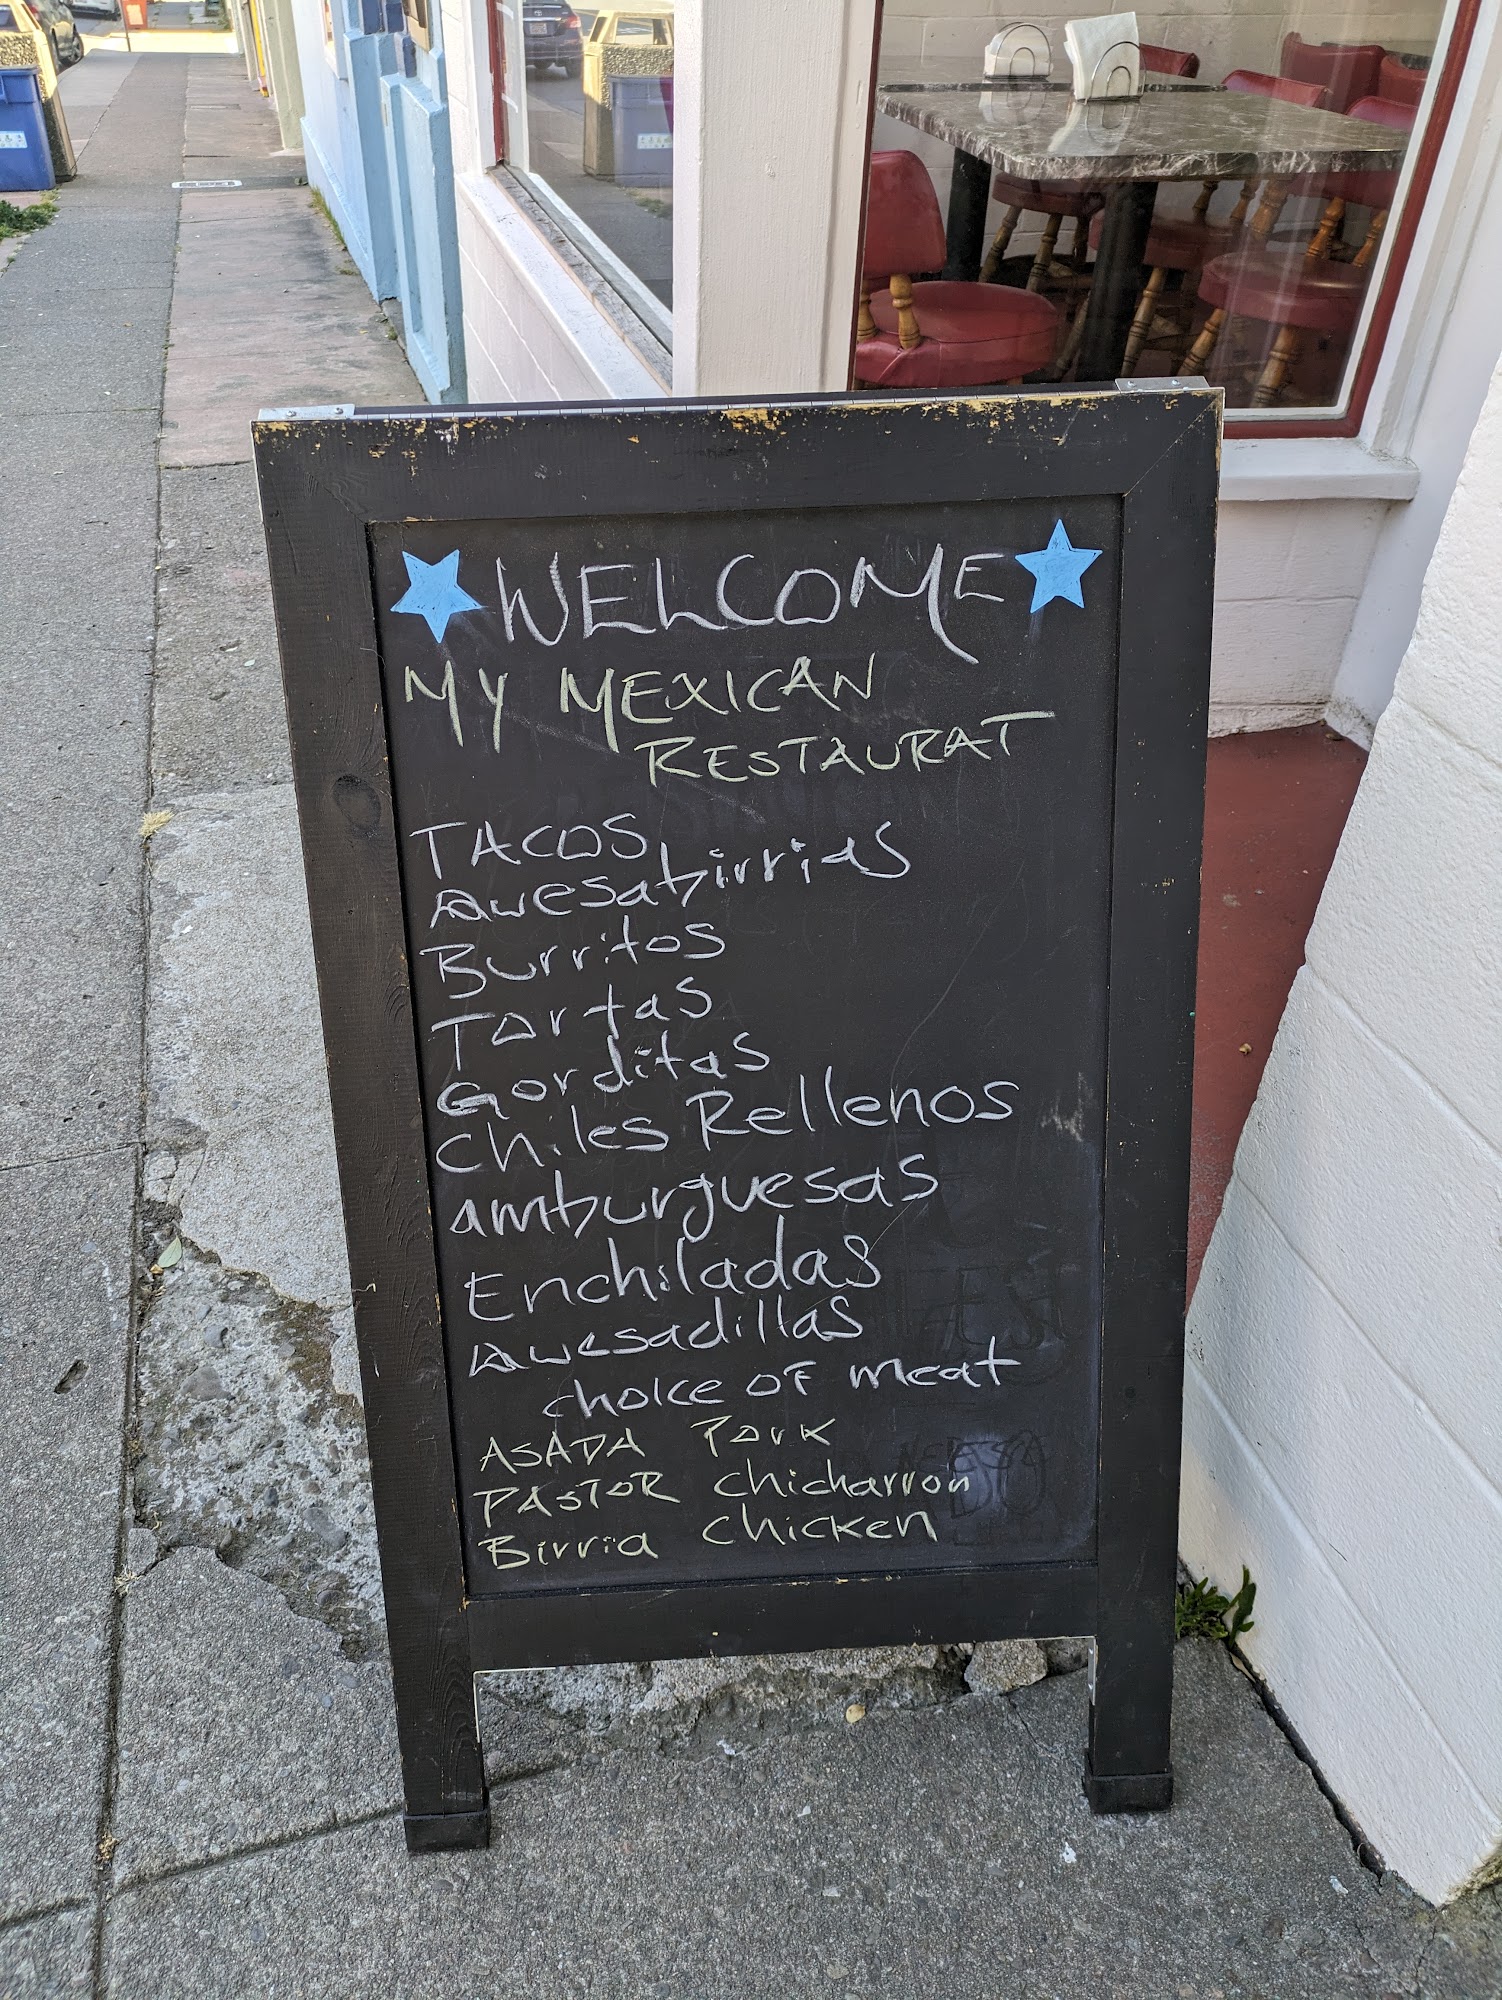 WELCOME
MY MEXICAN
RESTAURAT
TACOS
Quesabirrias
Burritos
Tortas
Gorditas
Chiles Rellenos
amburguesas
Enchiladas
Quesadillas
choice OF meat
ASADA Pork
PASTOR chicharron
Birria chicken